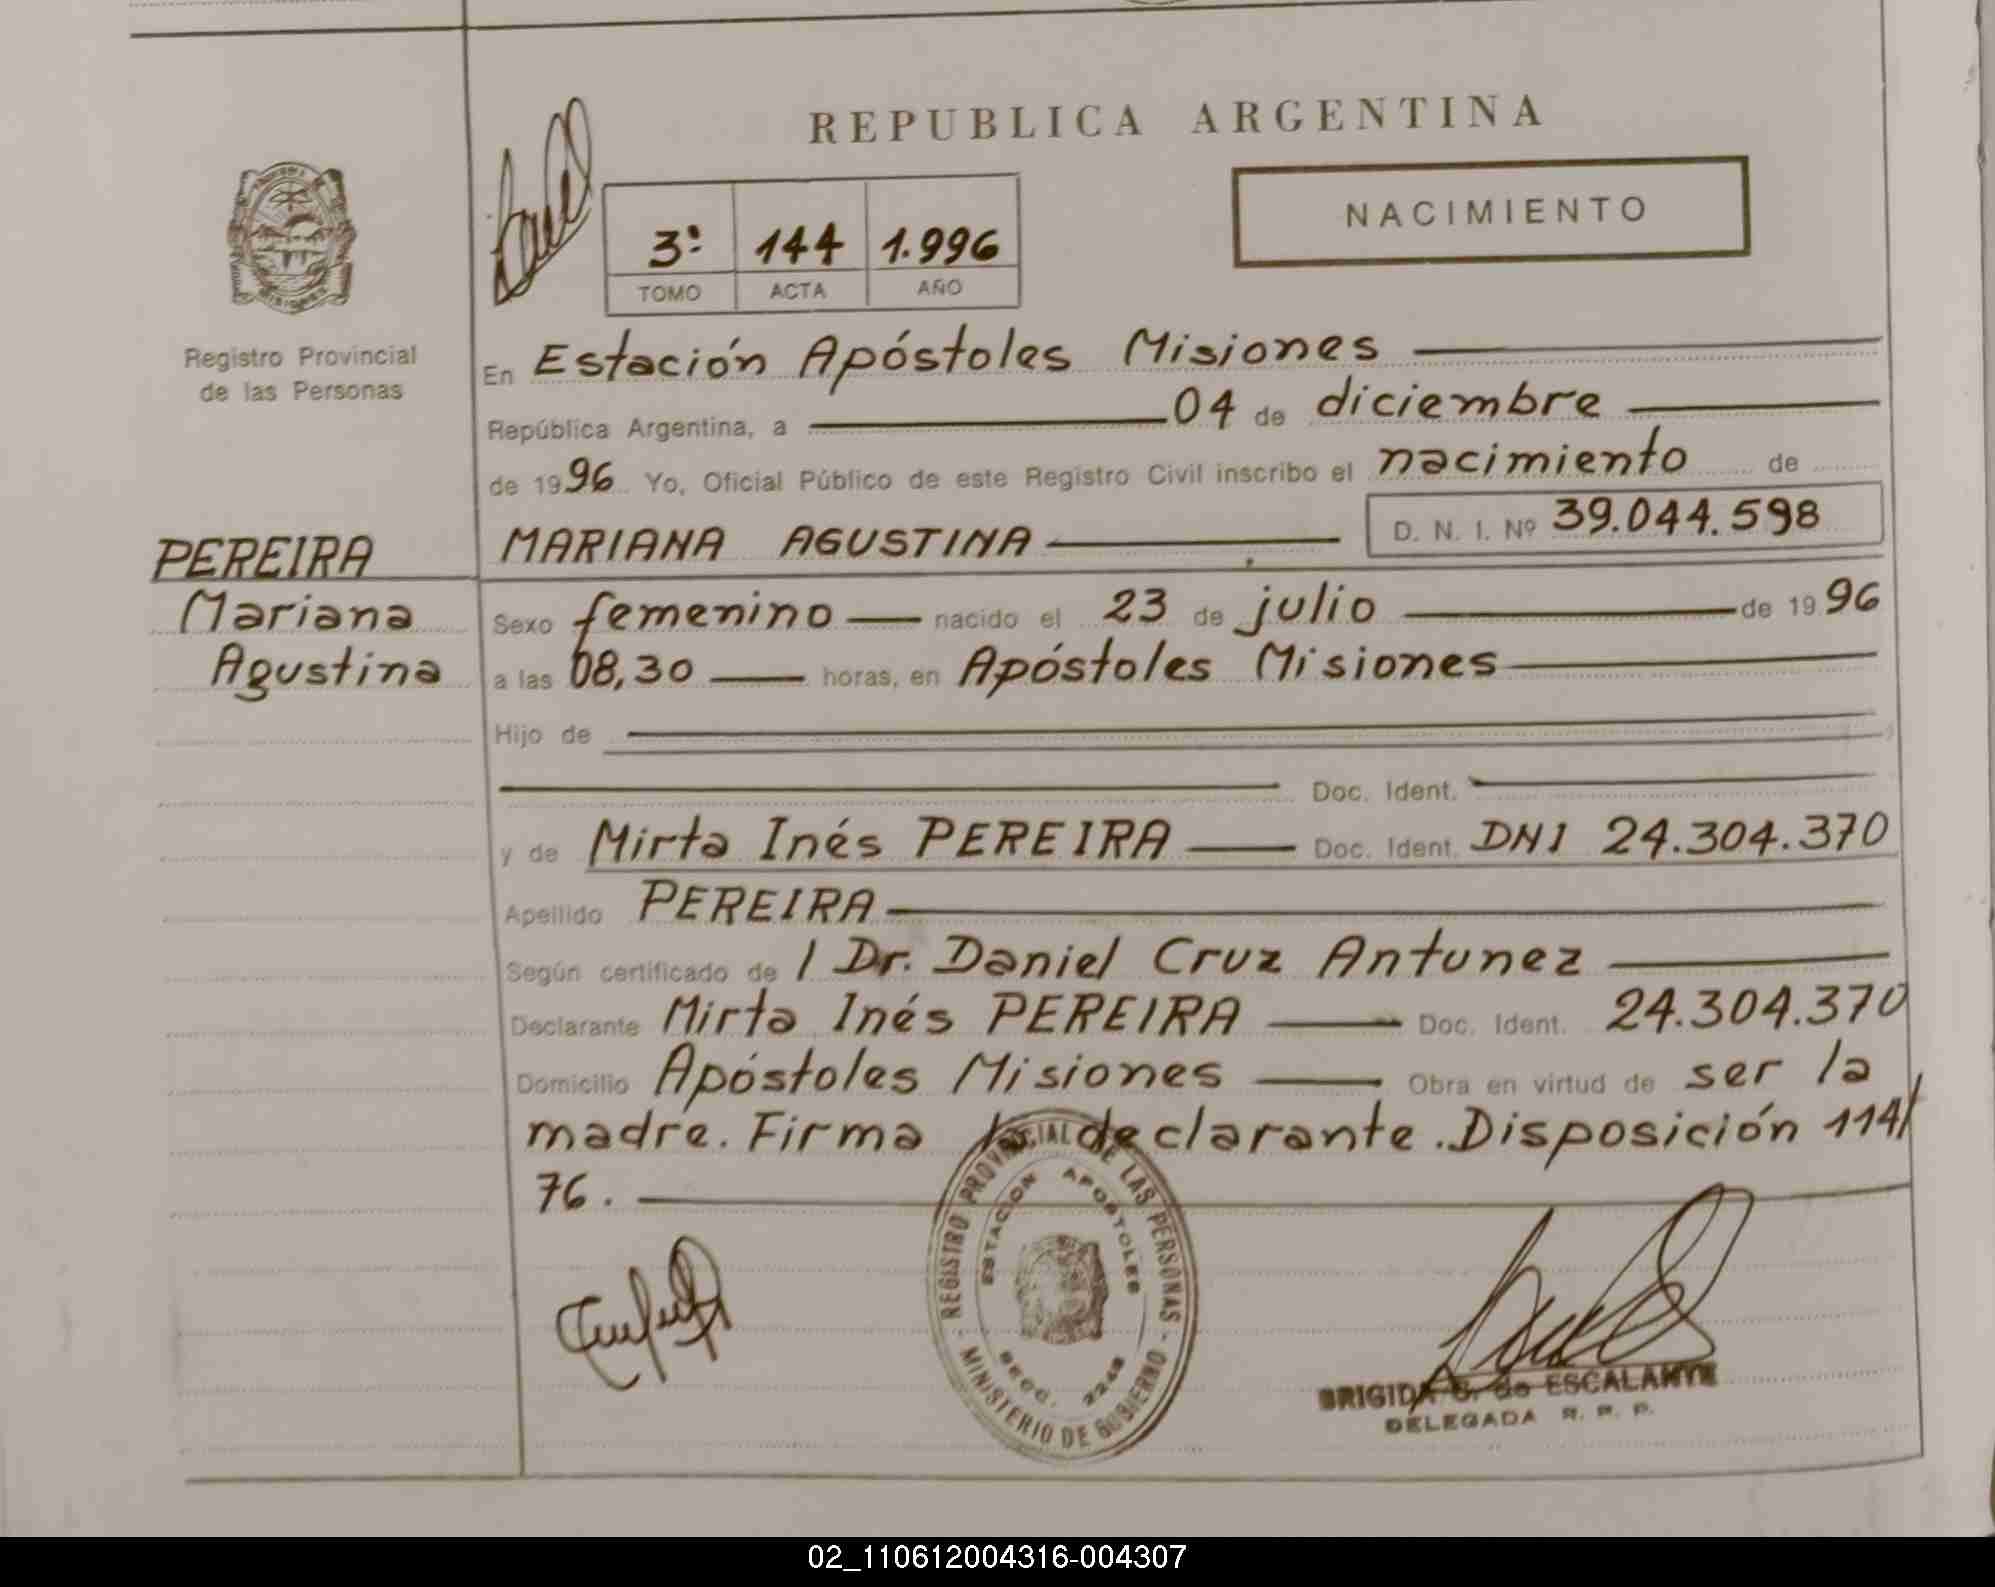 REPUBLICA ARGENTINA
NACIMIENTO
3º 144 1.996
TOMO ACTA AÑO
Registro Provincial
de las Personas
En Estación Apóstoles Misiones
República Argentina, a 04 de diciembre
de 1996 Yo, Oficial Público de este Registro Civil inscribo el nacimiento de
MARIANA AGUSTINA D. N. I. Nº 39.044.598
PEREIRA
Mariana
Agustina
Sexo femenino nacido el 23 de julio de 1996
a las 08,30 horas, en Apóstoles Misiones
Hijo de
Doc. Ident.
y de Mirta Inés PEREIRA Doc. Ident. DNI 24.304.370
Apellido PEREIRA
Según certificado de / Dr. Daniel Cruz Antunez
Declarante Mirta Inés PEREIRA Doc. Ident. 24.304.370
Domicilio Apóstoles Misiones Obra en virtud de ser la
madre. Firma declarante. Disposición 114/
76.
REGISTRO PROVINCIAL DE LAS PERSONAS - MINISTERIO DE GOBIERNO -
ESTACION APOSTOLES
SECC. 2248
BRIGIDA de ESCALANTE
DELEGADA R. P. P.
02_110612004316-004307